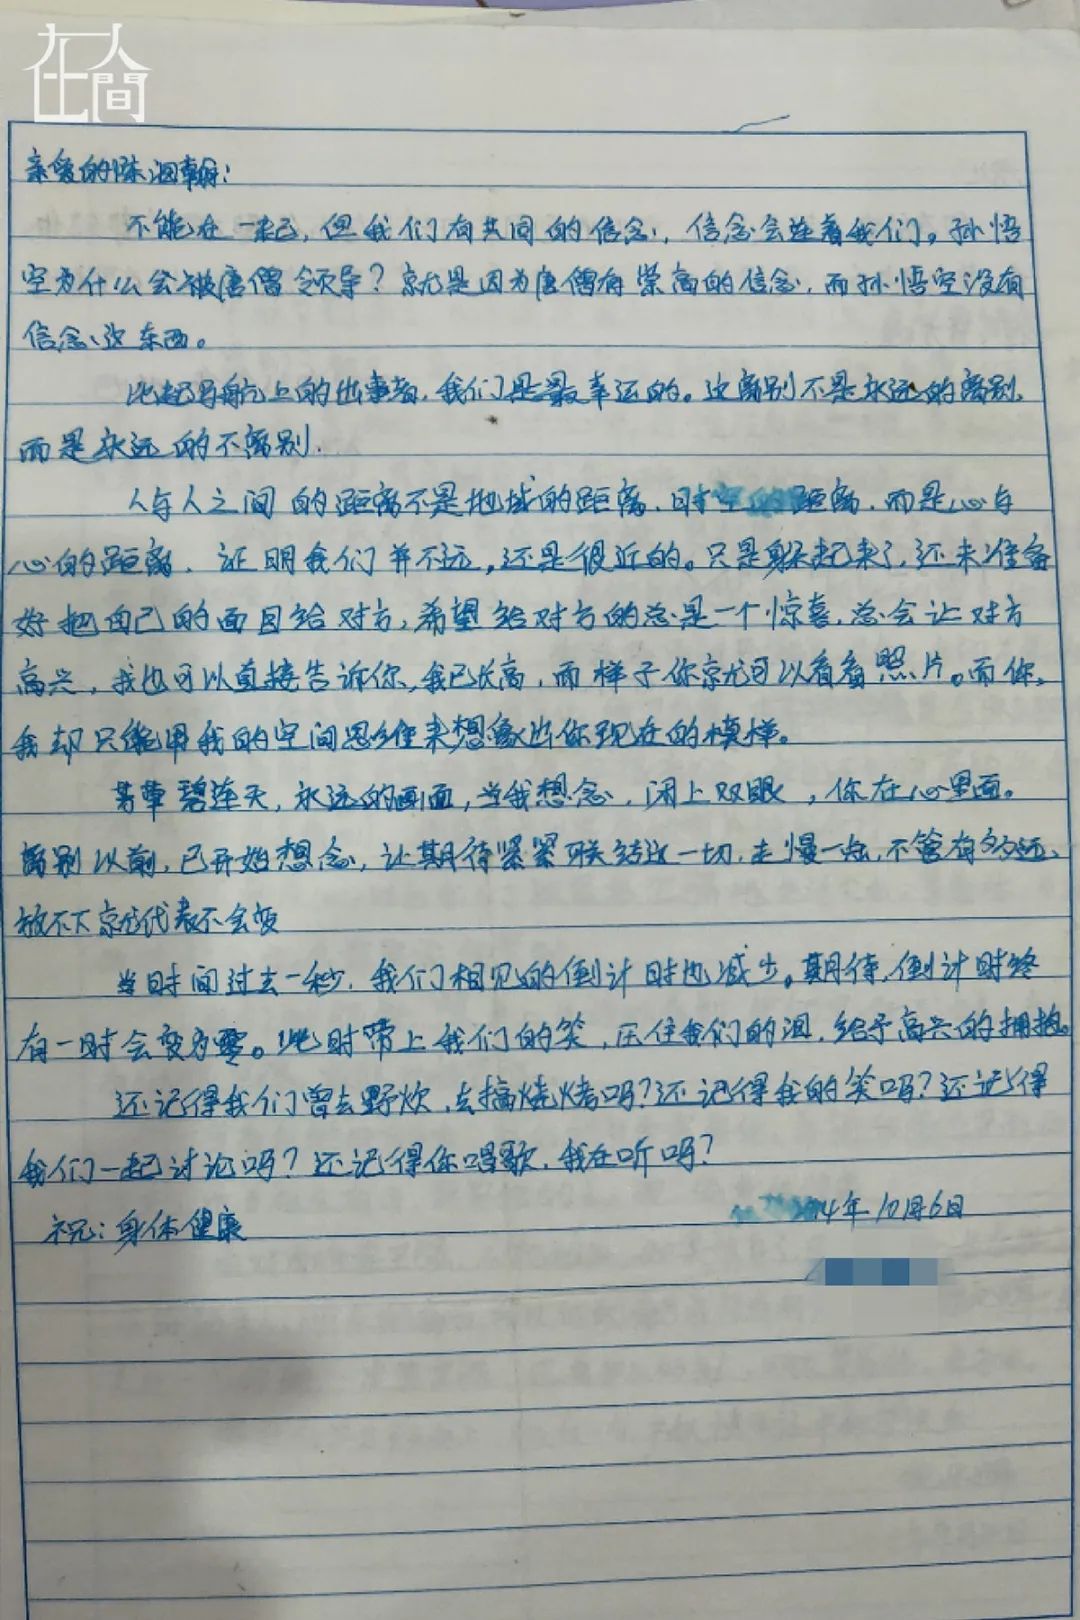 在人間
亲爱的陈泗翰：
不能在一起，但我们有共同的信念，信念会连着我们。孙悟
空为什么会被唐僧领导？就是因为唐僧有崇高的信念，而孙悟空没有
信念这东西。
比起马航上的出事者，我们是最幸运的。这离别不是永远的离别，
而是永远的不离别．
人与人之间的距离不是地域的距离、时空的距离，而是心与
心的距离，证明我们并不远，还是很近的。只是躲起来了，还未准备
好把自己的面目给对方，希望给对方的总是一个惊喜，总会让对方
高兴，我也可以直接告诉你，我已长高，而样子你就可以看看照片。而你，
我却只能用我的空间思维来想象出你现在的模样。
芳草碧连天，永远的画面，当我想念，闭上双眼，你在心里面。
离别以前，已开始想念，让期待紧紧联结这一切，走慢一点，不管有多远，
放不下就代表不会变
当时间过去一秒，我们相见的倒计时也减少。期待，倒计时终
有一时会变为零。此时带上我们的笑，压住我们的泪，给予高兴的拥抱。
还记得我们曾去野炊，去搞烧烤吗？还记得我的笑吗？还记得
我们一起讨论吗？还记得你唱歌，我在听吗？
祝：身体健康
2014年10月6日